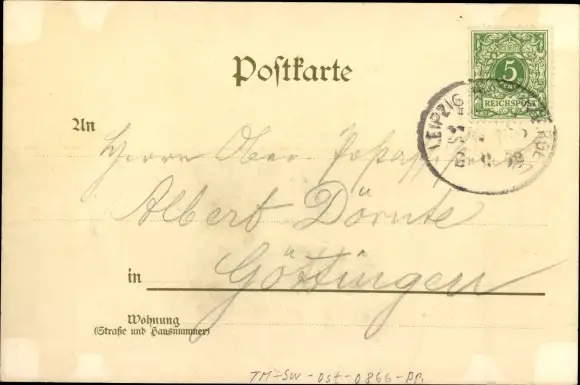 Postkarte
5
REICHSPOST
LEIPZIG
An
Herrn Ober-
Albert Dörnte
in Göttingen
Wohnung
(Straße und Hausnummer)
TM-SW-Ost-0866-AB